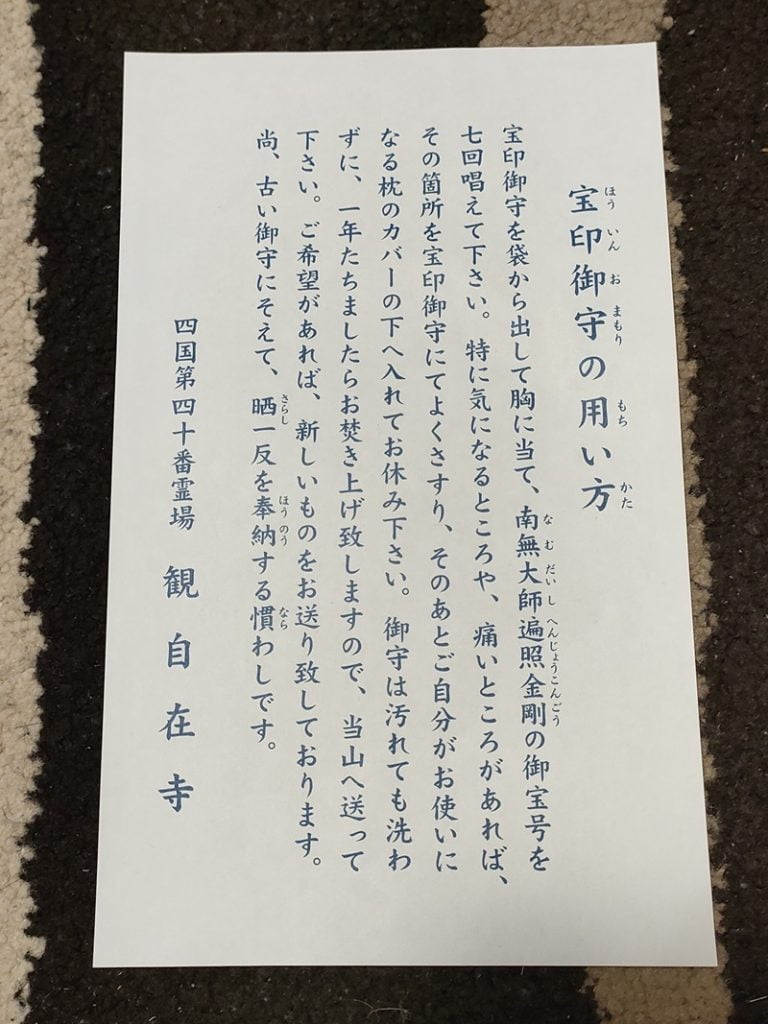 宝印御守の用い方
宝印御守を袋から出して胸に当て、南無大師遍照金剛の御宝号を
七回唱えて下さい。特に気になるところや、痛いところがあれば、
その箇所を宝印御守にてよくさすり、そのあとご自分がお使いに
なる枕のカバーの下へ入れてお休み下さい。御守は汚れても洗わ
ずに、一年たちましたらお焚き上げ致しますので、当山へ送って
下さい。ご希望があれば、新しいものをお送り致しております。
尚、古い御守にそえて、晒一反を奉納する慣わしです。
四国第四十番霊場 観自在寺